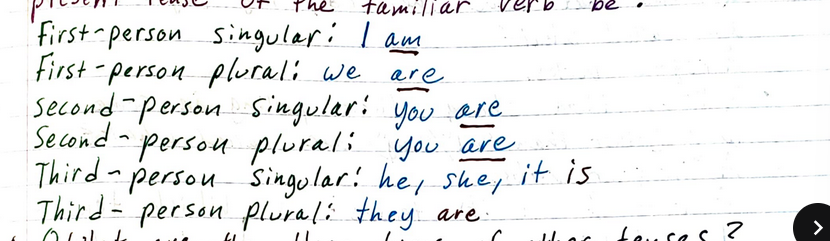 present tense of the familiar verb be.
First-person singular: I am
First-person plural: we are
second-person singular: you are
Second-person plural: you are
Third-person singular: he, she, it is
Third-person plural: they are.
other tenses?